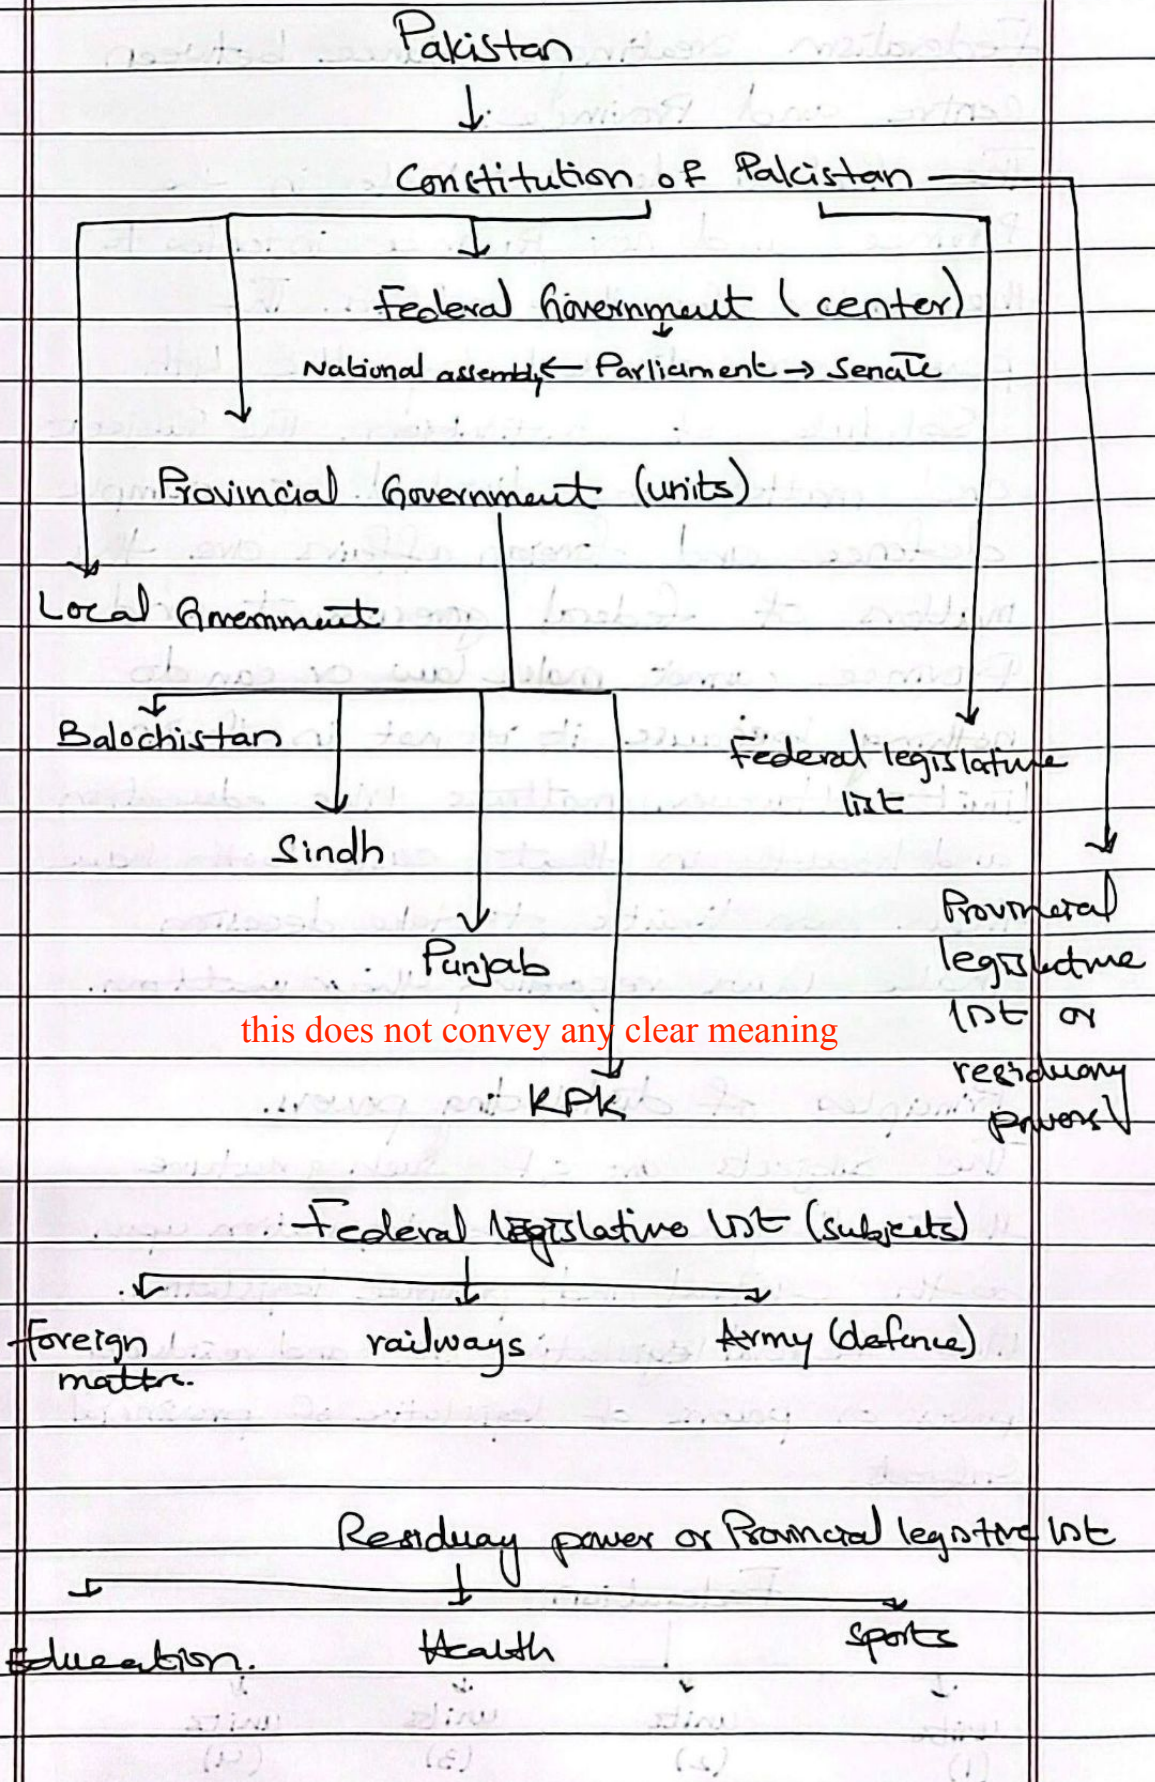 Pakistan
Constitution of Pakistan
Federal Government (center)
National assembly ← Parliament → Senate
Provincial Government (units)
Local Government
Balochistan
Federal legislature
list
Sindh
Provincial
Punjab
legislature
list or
this does not convey any clear meaning
residuary
powers
KPK
Federal legislative list (subjects)
foreign
mattr.
railways
Army (defence)
Residuay power or Provincial list
Education.
Health
sports